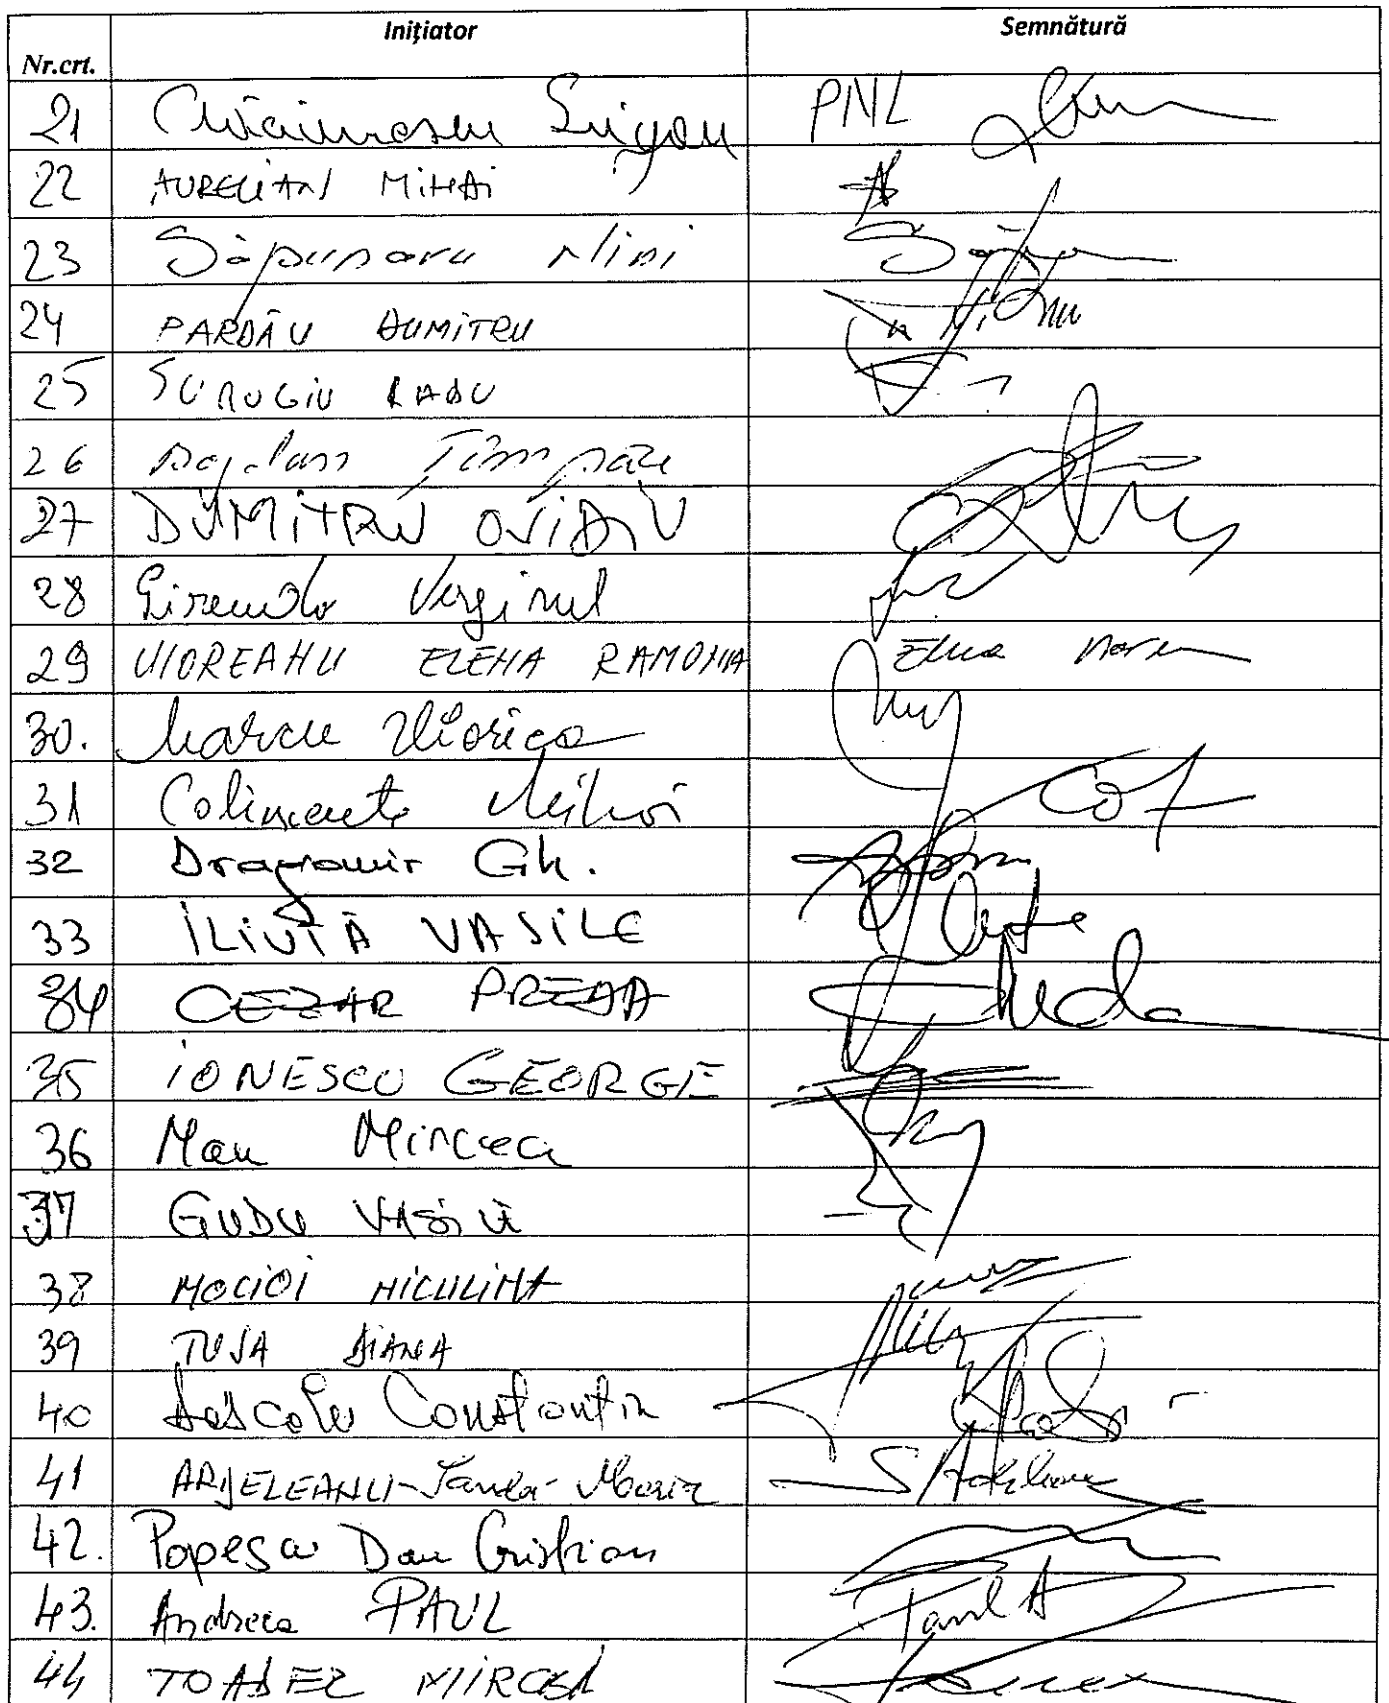 Nr.crt. Inițiator Semnătură
21 PNL
22 AURELIAN MIHAI
23 Săpunaru Nini
24 PARDĂU DUMITRU
25 SURUGIU RADU
26 Bogdan Tîmpău
27 DUMITRU OVIDIU
28 Virginel
29 VIOREANU ELENA RAMONA Elena
30. Marcu Viorica
31 Mihai
32 Dragomir Gh.
33 ILIUȚĂ VASILE
34 CEZAR PREDA
35 IONESCU GEORGE
36 Man Mircea
37 GUDU VASILE
38 MOCIOI NICULINA
39 TUȘA DIANA
40 Dascălu Constantin
41 ARJELEANU-Sanda-Maria
42. Popescu Dan Cristian
43. Andreea PAUL Paul A
44 TOADER MIRCEA